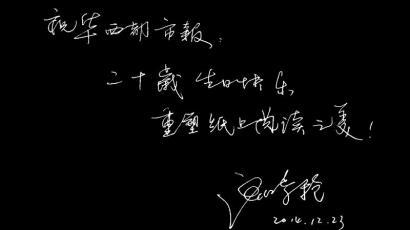 祝华西都市報：
二十歲生日快乐
重塑纸上阅读之夏！
2014.12.23